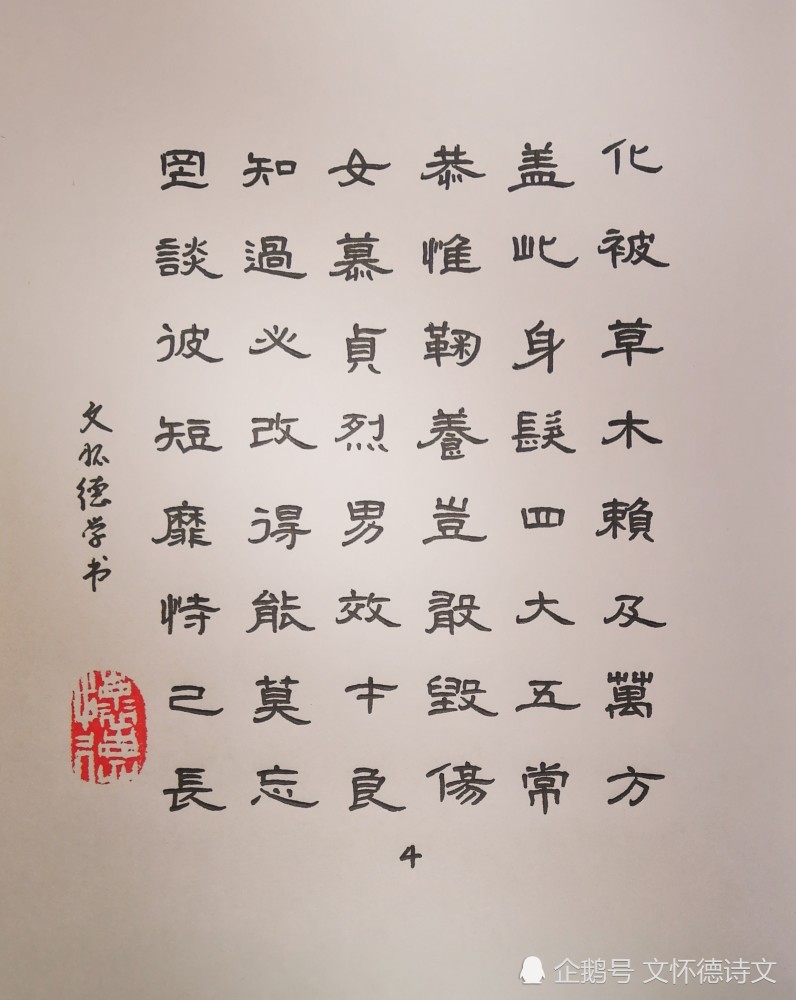 化被草木賴及萬方
盖此身髮四大五常
恭惟鞠養豈敢毀傷
女慕貞烈男效才良
知過必改得能莫忘
罔談彼短靡恃己長
文怀德学书
懷德
4
企鹅号 文怀德诗文